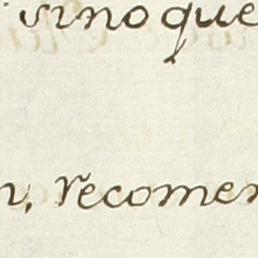 sino que
n, recomen